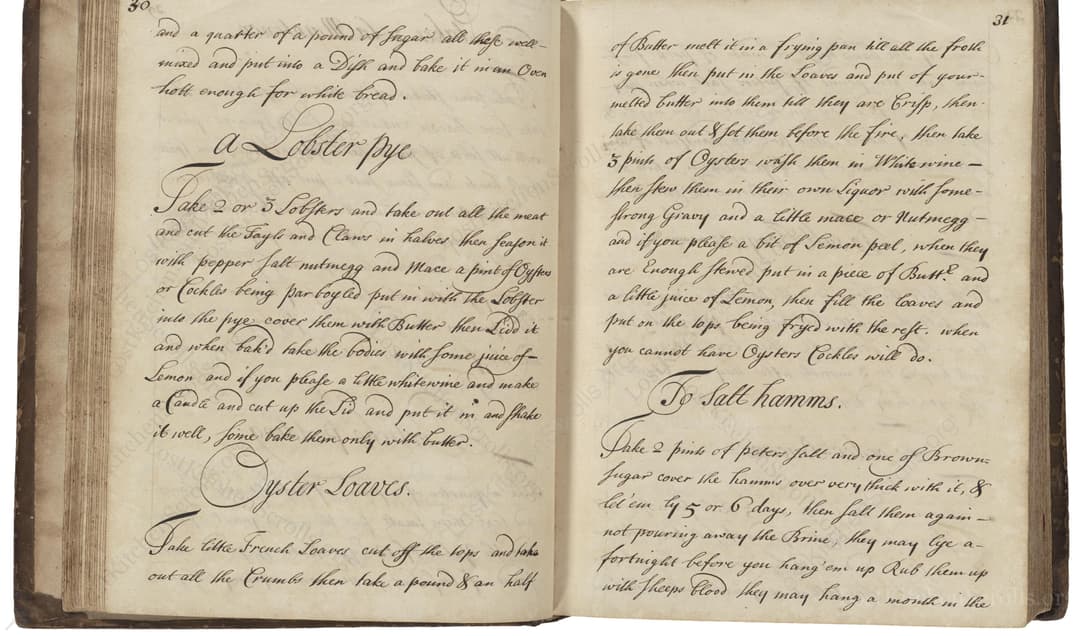 30
and a quarter of a pound of Sugar all these well-
mixed and put into a Dish and bake it in an Oven
hott enough for white bread.
a Lobster pye
Take 2 or 3 Lobsters and take out all the meat
and cut the Tayls and Claws in halves then season it
with pepper salt nutmegg and Mace a pint of Oysters
or Cockles being parboyled put in with the Lobster
into the pye cover them with Butter then Lidd it
and when bak'd take the bodies with some juice of-
Lemon and if you please a little whitewine and make
a Caudle and cut up the Lid and put it in and shake
it well, some bake them only with butter.
Oyster Loaves.
Take little French Loaves cut off the tops and take
out all the Crumbs then take a pound & an half
31
of Butter melt it in a frying pan till all the froth
is gone then put in the Loaves and put of your-
melted butter into them till they are Crisp, then-
take them out & set them before the fire, then take
3 pints of Oysters wash them in White wine-
then stew them in their own Liquor with some-
strong Gravy and a little mace or Nutmegg-
and if you please a bit of Lemon peel, when they
are Enough stewed put in a piece of Buttr. and
a little juice of Lemon, then fill the loaves and
put on the tops being fryed with the rest. when
you cannot have Oysters Cockles will do.
To Salt hamms.
Take 2 pints of peters salt and one of Brown=
sugar cover the hamms over very thick with it, &
let'em ly 5 or 6 days, then salt them again-
not pouring away the Brine, they may lye a-
fortnight before you hang'em up Rub them up
with sheeps blood they may hang a month in the